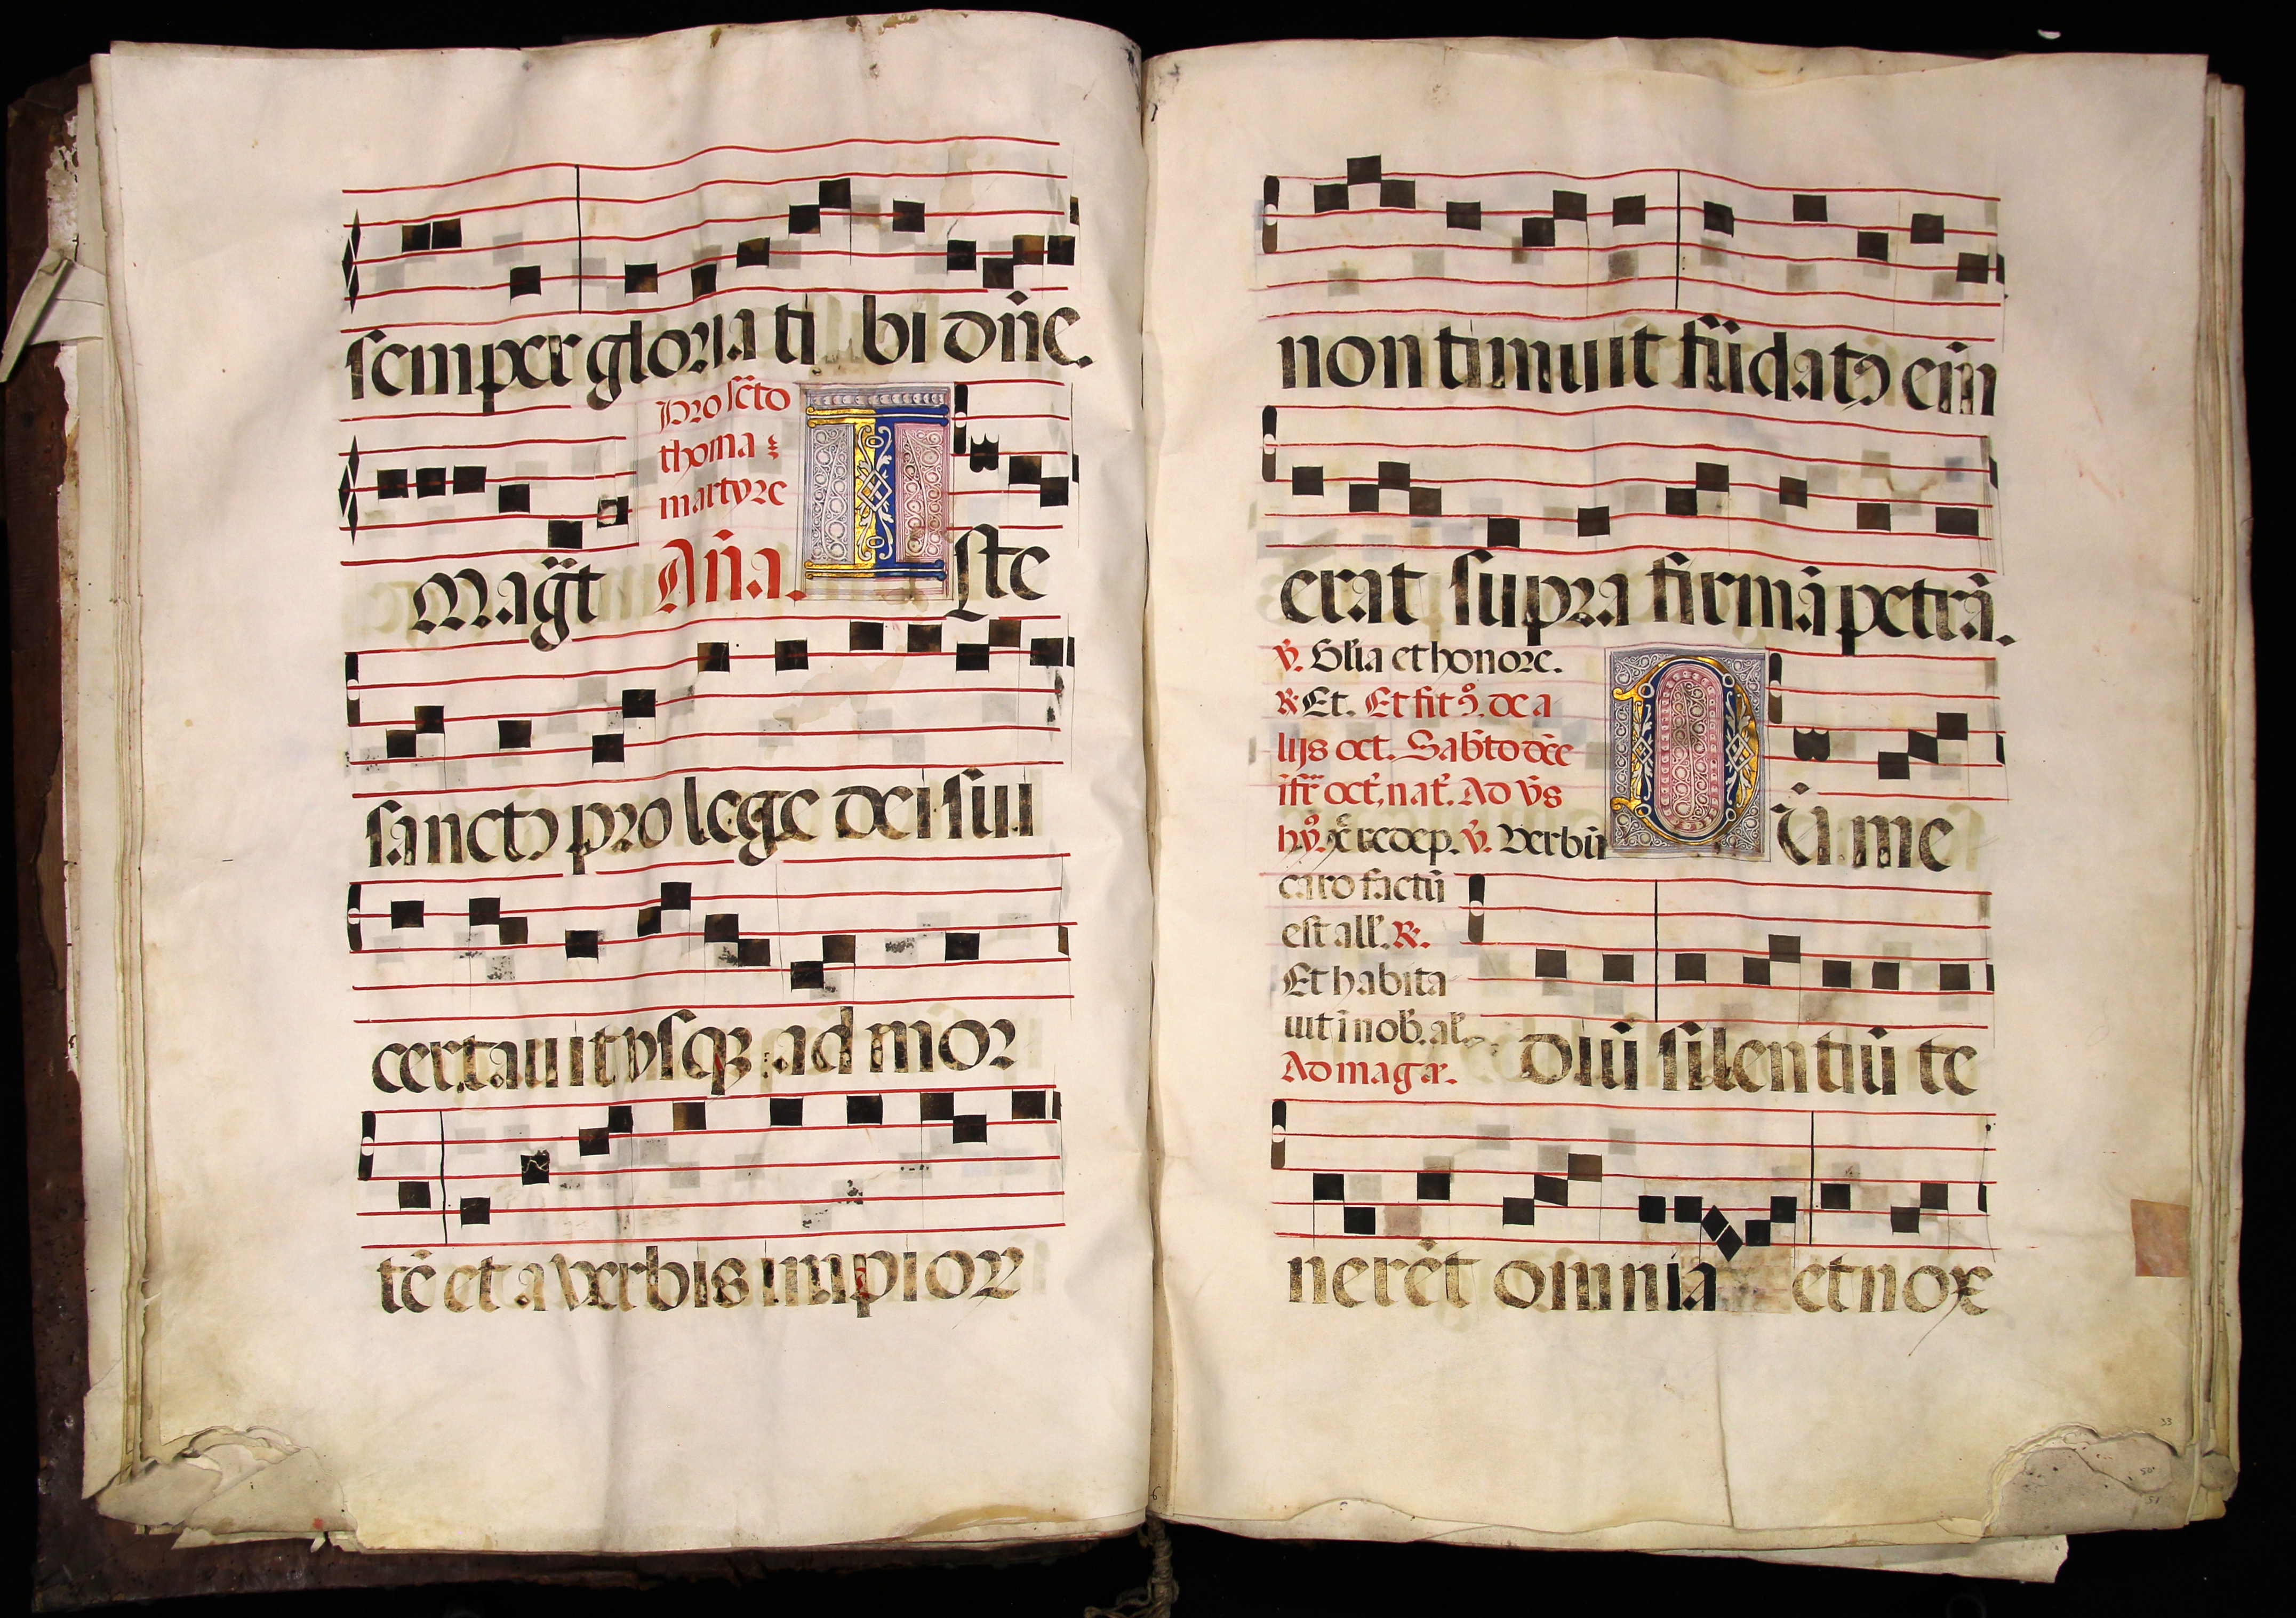 semper gloria ti bi dñe.
Pro scto
thoma
martyre
Magt̃ Aña. I ste
sanctꝯ pro lege dei sui
certauit vsqꝫ ad mor
tẽ et a verbis impior
non timuit fũdatꝯ eĩm
erat supra firmã petrã.
℣. Glĩa et honore.
℟ Et. Et fit ꝯ. de a
lijs oct. Sabto dẽe
ĩfr̃ oct. nat. Ad v̾s
hỹ. xp̃e redep. ℣. Verbũ D ũ me
caro factũ
est all. ℟.
Et habita
uit ĩ nob. al
Ad magr̃. diũ silentiũ te
nerẽt omnia et nox
33
50
51
6